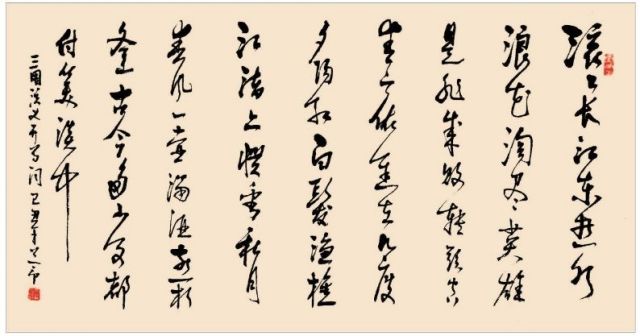 滚〻长江东逝水
浪花淘尽英雄
是非成败转头空
青山依旧在几度
夕阳红白发渔樵
江渚上惯看秋月
春风一壶浊酒喜相
逢古今多少事都
付笑谈中
三国演义开篇词己丑年